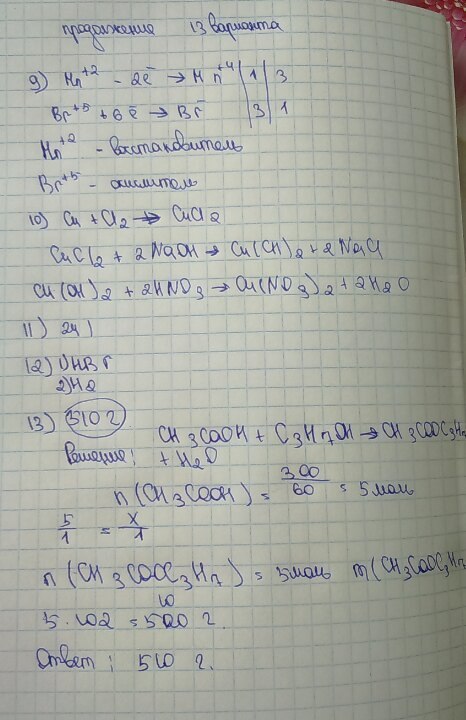 продолжение 13 варианта
9) Mn⁺² - 2ē → Mn⁺⁴ | 1 | 3
Br⁺⁵ + 6ē → Br⁻ | 3 | 1
Mn⁺² - восстановитель
Br⁺⁵ - окислитель
10) Cu + Cl₂ → CuCl₂
CuCl₂ + 2NaOH → Cu(OH)₂ + 2NaCl
Cu(OH)₂ + 2HNO₃ → Cu(NO₃)₂ + 2H₂O
11) 241
12) 1) HBr
2) H₂
13) 510 г
CH₃COOH + C₃H₇OH → CH₃COOC₃H₇
Решение: + H₂O
n(CH₃COOH) = 300/60 = 5 моль
5/1 = x/1
n(CH₃COOC₃H₇) = 5 моль m(CH₃COOC₃H₇
5·102 = 510 г.
Ответ: 510 г.